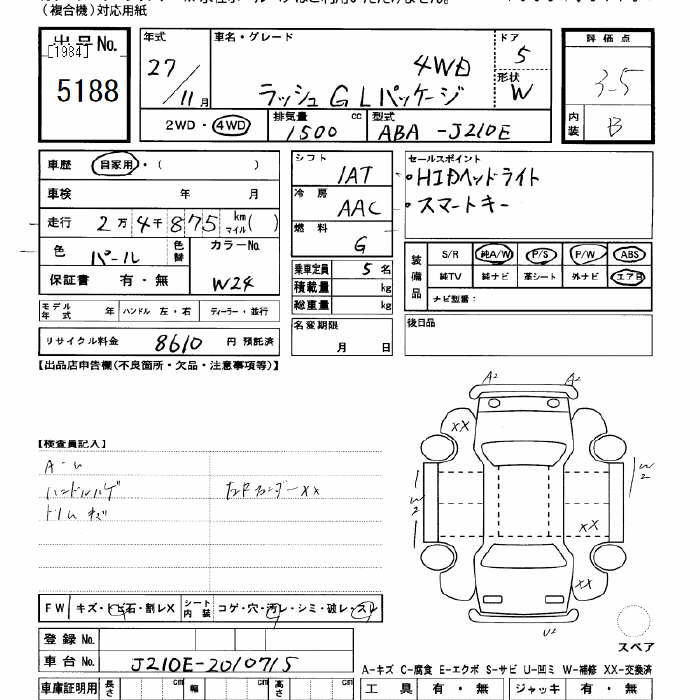 (複合機)対応用紙
出品No.
[1984]
5188
年式 車名・グレード ドア 評価点
27/11月 ラッシュ GLパッケージ 4WD 5 3.5
形状 W
2WD・4WD 排気量 1500 cc 型式 ABA-J210E 内装 B
車歴 自家用・( )
車検 年 月
走行 2万4千875 km マイル( )
色 パール 色替 カラーNo. W24
保証書 有・無
モデル年式 年 ハンドル 左・右 ディーラー・並行
リサイクル料金 8610 円 預託済
シフト IAT
冷房 AAC
燃料 G
乗車定員 5 名
積載量 kg
総重量 kg
名変期限 月 日
セールスポイント
・HIDヘッドライト
・スマートキー
装備品 S/R 純A/W P/S P/W ABS
純TV 純ナビ 革シート 外ナビ エアB
ナビ型番:
後日品
【出品店申告欄(不良箇所・欠品・注意事項等)】
A2 A2
XX
W2
W2
XX
XX
U2
【検査員記入】
ハンドルハゲ
XX
FW キズ・トビ石・割レX シート内装 コゲ・穴・汚レ・シミ・破レ・スレ
登録No.
車台No. J210E-2010715
スペア
A-キズ C-腐食 E-エクボ S-サビ U-凹ミ W-補修 XX-交換済
車庫証明用 長さ cm 幅 cm 高さ cm
工具 有・無 ジャッキ 有・無